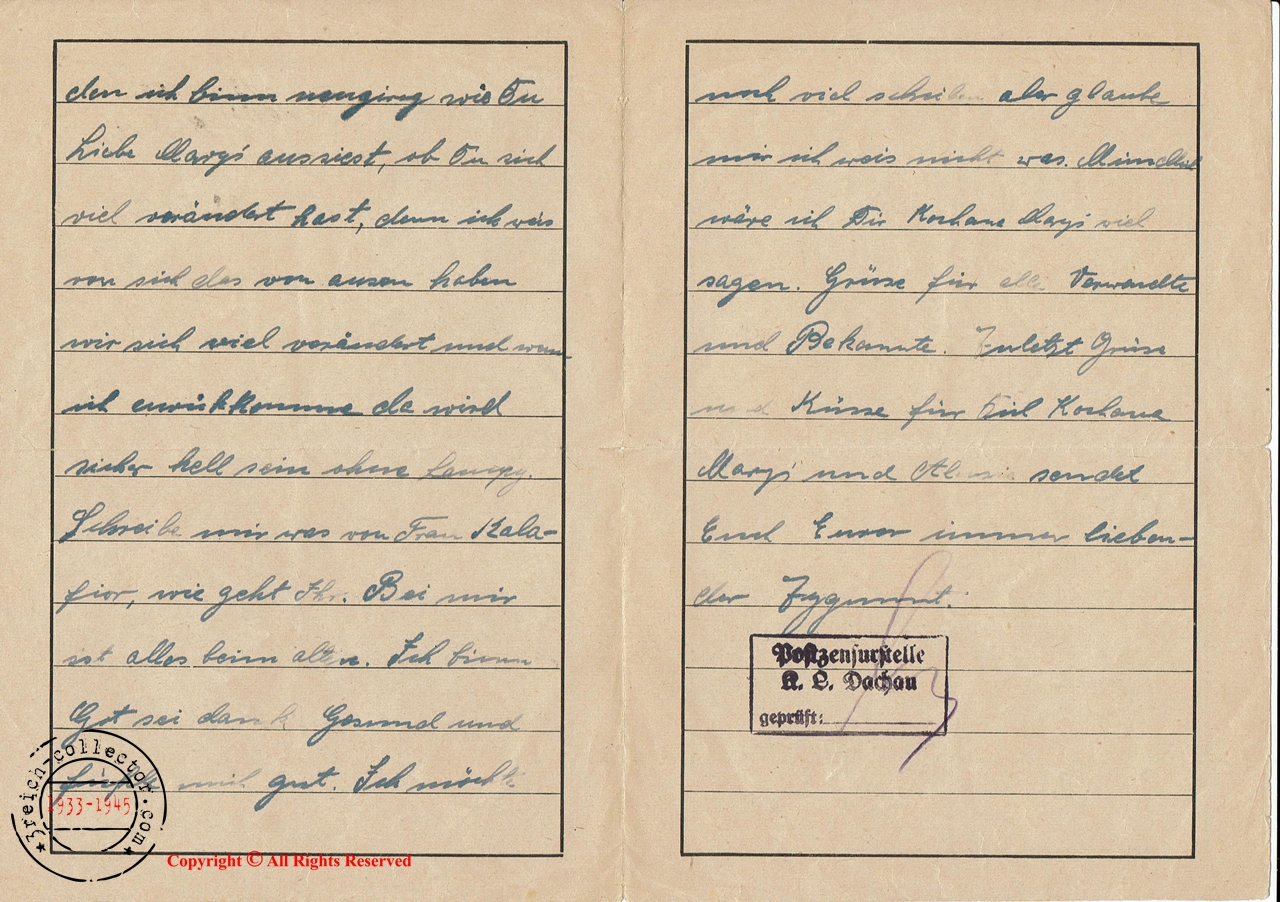 den ich binn neugirig wie Du
Liebe Maryś aussiest, ob Du sich
viel verändert hast, denn ich weis
von sich das von ausen haben
wir sich viel verändert und wenn
ich zurükkomme da wird
sicher hell sein ohne Lampy.
Schreibe mir was von Frau Kala-
fior, wie geht Ihr. Bei mir
ist alles beim alten. Ich binn
Got sei dank Gesund und
mich gut. Ich möchte
noch viel schreiben aber glaube
mir ich weis nicht was.
wäre ich Dir Kochana Maryś viel
sagen. Grüse für alle Verwandte
und Bekannte. Zuletzt Grüse
und Küsse für Kochana
Maryś und sendet
Euch Euer immer lieben-
der Zygmunt.
Postzensurstelle
K. L. Dachau
geprüft:
3reich-collector.com
1933-1945
Copyright © All Rights Reserved